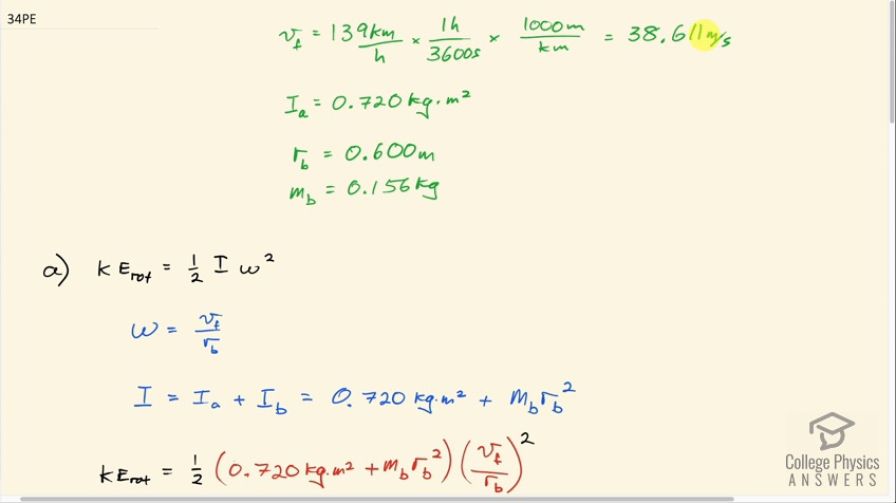 34PE
v_f = 139 km/h × 1h/3600s × 1000m/km = 38.611 m/s
I_a = 0.720 kg·m²
r_b = 0.600 m
m_b = 0.156 kg
a) KE_rot = 1/2 I ω²
ω = v_f/r_b
I = I_a + I_b = 0.720 kg·m² + m_b r_b²
KE_rot = 1/2 (0.720 kg·m² + m_b r_b²)(v_f/r_b)²
College Physics
ANSWERS